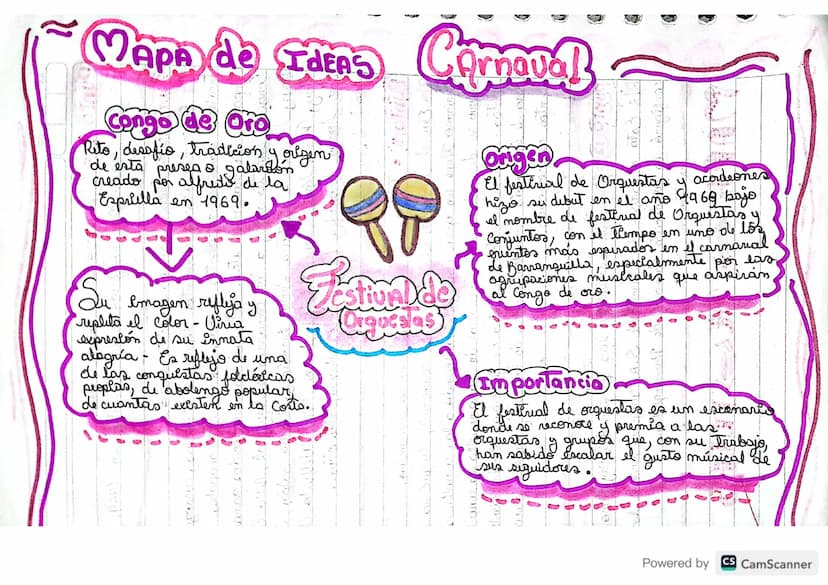 MAPA de IDEAS Carnaval
Congo de Oro
Rito, desafío, tradición y origen
de esta presea o galardón
creado por alfredo de la
Espriella en 1969.
Su imagen refleja y
replita el color - Viva
expresión de su innata
alegría - Es reflejo de una
de las conquistas folclóricas
propias, de abolengo popular,
de cuantas existen en la Costa.
Festival de
Orquestas
Origen
El festival de Orquestas y acordeones
hizo su debut en el año 1969 bajo
el nombre de festival de Orquestas y
Conjuntos, con el tiempo en uno de los
eventos más esperados en el carnaval
de Barranquilla, especialmente por las
agrupaciones musicales que aspiran
al Congo de oro.
Importancia
El festival de orquestas es un escenario
donde se reconoce y premia a las
orquestas y grupos que, con su trabajo,
han sabido escalar el gusto músical de
sus seguidores.
Powered by CS CamScanner